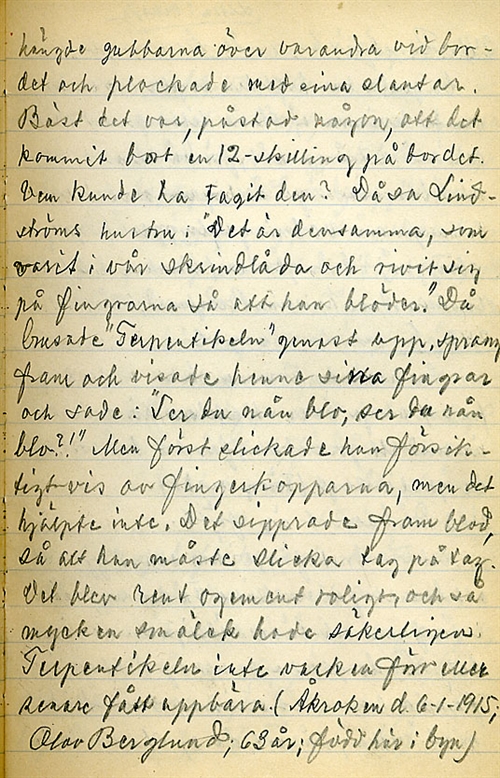 hängde gubbarna över varandra vid bor-
det och plockade med sina slantar.
Bäst det var, påstod någon, att det
kommit bort en 12-skilling på bordet.
Vem kunde ha tagit den? Då sa Lind-
ströms hustru: "Det är densamma, som
varit i vår skrindlåda och rivit sig
på fingrarna så att han blöder." Då
brusade "Terpentikeln" genast upp, sprang
fram och visade henne sina fingrar
och sade: "Ser du nån blo, ser du nån
blo?!" Men först slickade han försik-
tigtvis av fingerkopparna, men det
hjälpte inte. Det sipprade fram blod,
så att han måste slicka tag på tag.
Det blev rent ogement roligt, och så
mycken smälek hade säkerligen
Terpentikeln inte varken förr eller
senare fått uppbära. (Åkroken d. 6-1-1915;
Olov Berglund; 63 år; född här i byn)